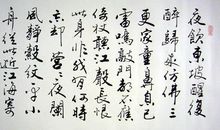 夜飲東坡醒復
醉歸來仿佛三
更家童鼻息已
雷鳴敲門都不應
倚杖聽江聲長恨
此身非我有何時
忘却營營夜闌
風靜縠紋平小
舟從此逝江海寄